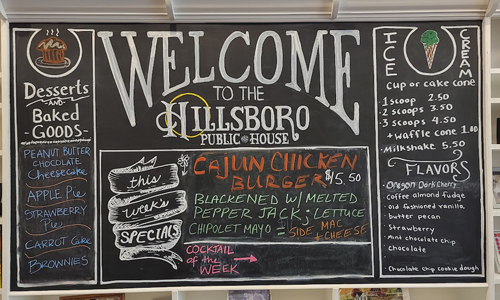 Desserts
-AND-
Baked
-GOODS-
PEANUT BUTTER
CHOCOLATE
Cheesecake
APPLE Pie
STRAWBERRY
Pie
CARROT Cake
BROWNIES
WELCOME
TO THE
HILLSBORO
PUBLIC HOUSE
this
weeks
SPECIALS
CAJUN CHICKEN
BURGER $15.50
BLACKENED W/ MELTED
PEPPER JACK, LETTUCE
CHIPOLET MAYO = SIDE MAC
+ CHEESE
COCKTAIL
of the
WEEK
ICE CREAM
Cup or cake cone
1 scoop 2.50
2 scoops 3.50
3 scoops 4.50
+ waffle cone 1.00
Milkshake 5.50
FLAVORS
Oregon Dark Cherry
Coffee almond fudge
old fashioned vanilla
butter pecan
Strawberry
Mint chocolate chip
Chocolate
Chocolate chip cookie dough